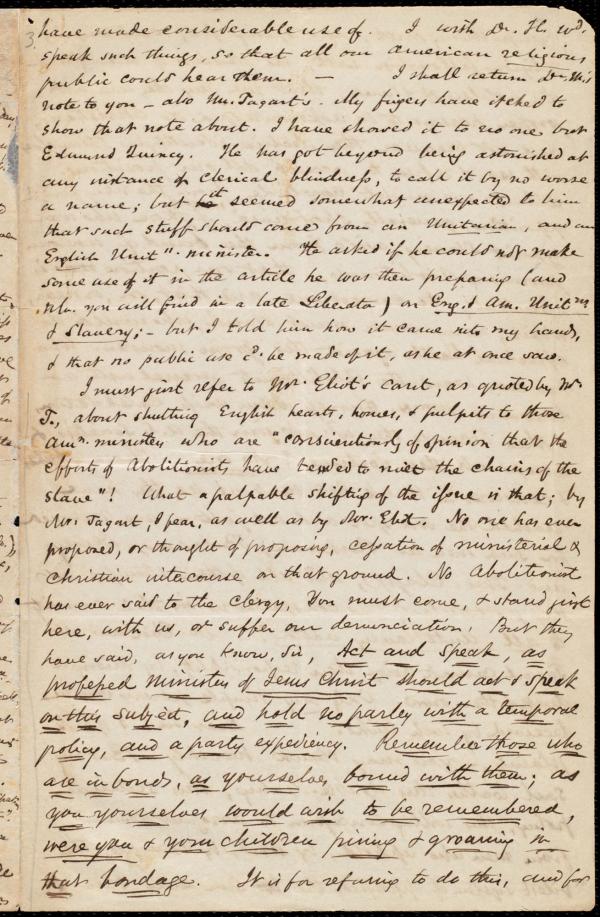 3.
have made considerable use of. I wish Dr. H. wd.
speak such things, so that all our American religious
public could hear them. — I shall return Dr. H's
note to you – also Mr. Tagart's. My fingers have itched to
show that note about. I have showed it to no one but
Edmund Quincy. He has got beyond being astonished at
any instance of clerical blindness, to call it by no worse
a name; but it seemed somewhat unexpected to him
that such stuff should come from an Unitarian, and an
English Unitn. minister. He asked if he could not make
some use of it in the article he was then preparing (and
wh. you will find in a late Liberator) on Eng. & Am. Unitms
& Slavery; – but I told him how it came into my hands,
& that no public use cd. be made of it, as he at once saw.
I must just refer to Mr. Eliot's cant, as quoted by Mr.
T., about shutting English hearts, homes, & pulpits to those
Amn. ministers who are "conscientiously of opinion that the
efforts of Abolitionists have tended to rivet the chains of the
slave"! What a palpable shifting of the issue is that; by
Mr. Tagart, I fear, as well as by Mr. Eliot. No one has ever
proposed, or thought of proposing, cessation of ministerial &
Christian intercourse on that ground. No Abolitionist
has ever said to the clergy, You must come, & stand just
here, with us, or suffer our denunciation. But they
have said, as you know, Sir, Act and speak, as
professed ministers of Jesus Christ should act & speak
on this subject, and hold no parley with a temporal
policy, and a party expediency. Remember those who
are in bonds, as yourselves bound with them; as
you yourselves would wish to be remembered,
were you & your children pining & groaning in
that bondage. It is for refusing to do this, and for